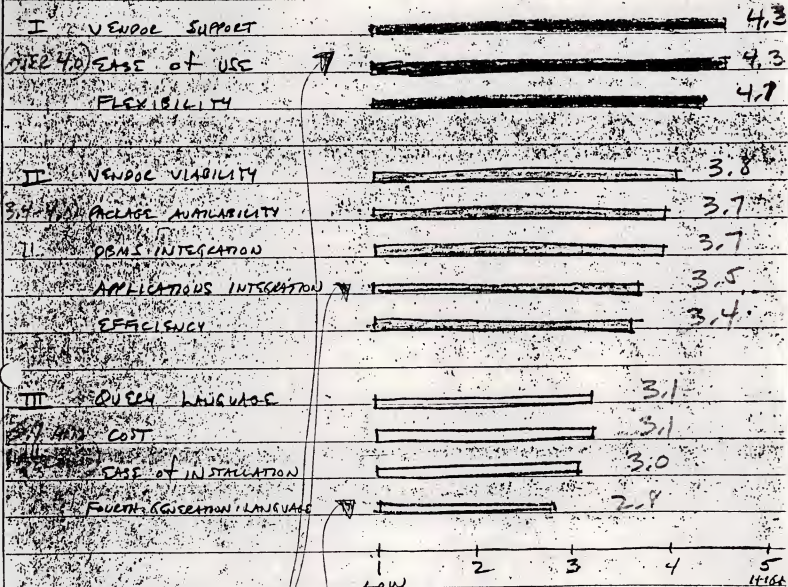 I VENDOR SUPPORT 4.3
EASE of USE 4.3
FLEXIBILITY
II VENDOR VIABILITY 3.8
PACKAGE AVAILABILITY 3.7
DBMS INTEGRATION 3.7
APPLICATIONS INTEGRATION 3.5
EFFICIENCY 3.4
III QUERY LANGUAGE 3.1
COST 3.1
EASE of INSTALLATION 3.0
FOURTH GENERATION LANGUAGE
1 2 3 4 5
LOW